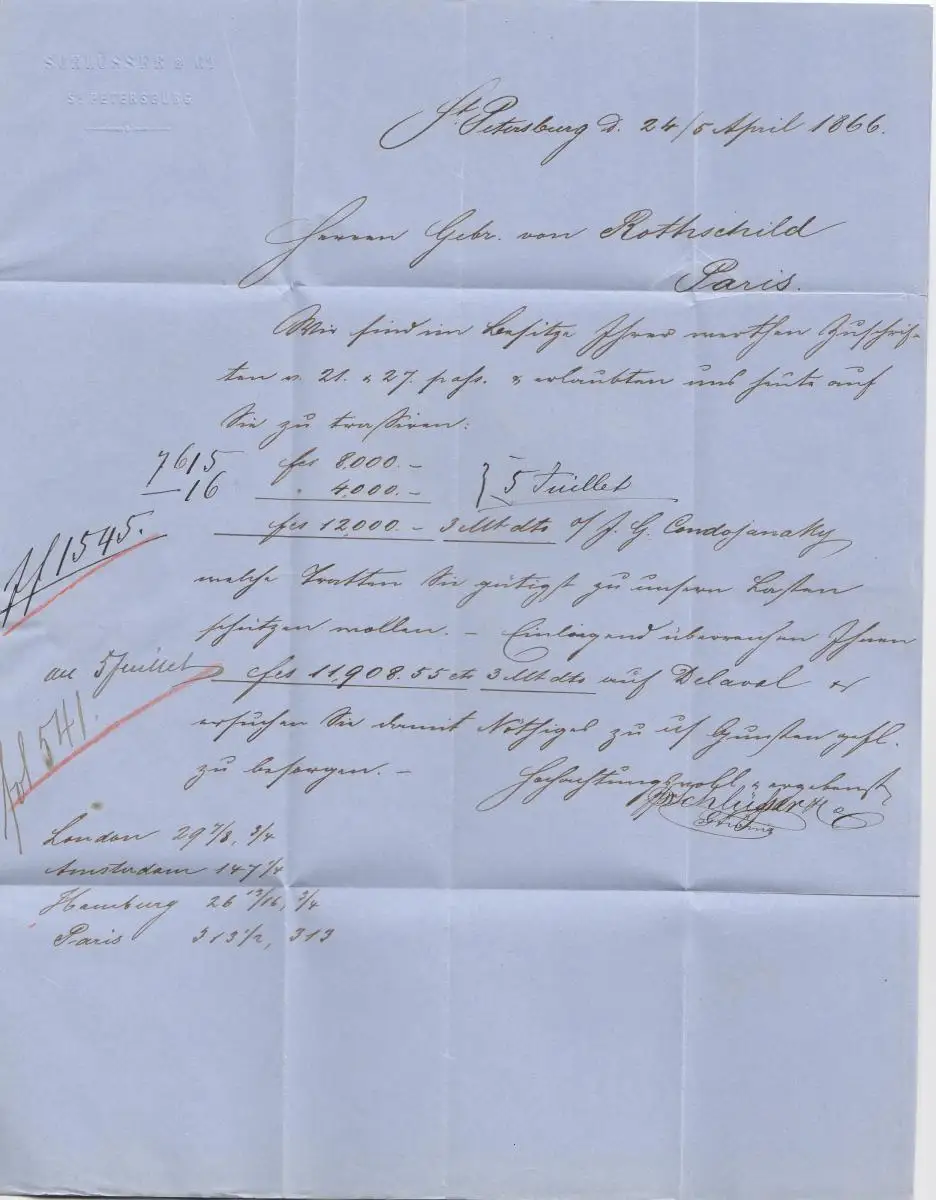 SCHLÜSSER & Cº
St PETERSBURG
St. Petersburg d. 24/5 April 1866.
Herren Gebr. von Rothschild
Paris.
Wir sind im Besitze Ihrer werthen Zuschrif-
ten v. 21. & 27. pass. & erlaubten uns heute auf
Sie zu trassiren:
7615 fcs 8,000.–
–16 " 4,000.– } 5 Juillet
fcs 12,000.– 3 Mt dto o/ J. G. Condojanaky
ff 1545.
welche Tratten Sie gütigst zu unsern Lasten
schützen wollen. – Einliegend überreichen Ihnen
au 5 Juillet fcs 11,908.55 cts 3 Mt dto auf Delaval &
fol 541.
ersuchen Sie damit Nöthiges zu u/ Gunsten gefl.
zu besorgen. –
Hochachtungsvoll & ergebenst
Schlüsser & Co
London 29 7/8, 3/4
Amsterdam 147 1/4
Hamburg 26 13/16, 3/4
Paris 313 1/2, 313